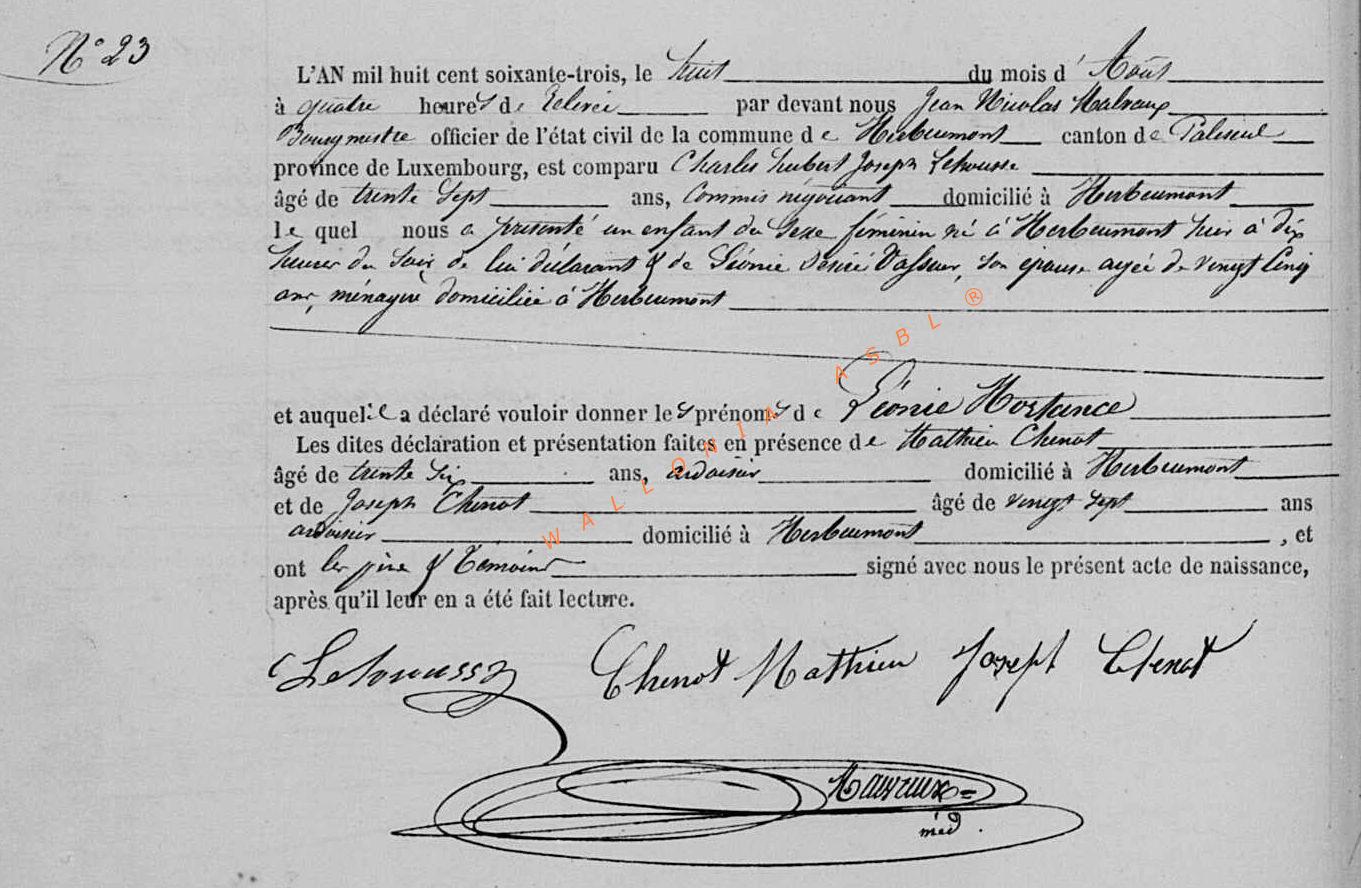 N° 23
L'AN mil huit cent soixante-trois, le huit du mois d' Août
à quatre heures de relevée par devant nous Jean Nicolas Malvaux
Bourgmestre officier de l'état civil de la commune de Herbeumont canton de Paliseul
province de Luxembourg, est comparu Charles hubert Joseph Lehousse
âgé de trente Sept ans, Commis négociant domicilié à Herbeumont
le quel nous a présenté un enfant du Sexe féminin né à Herbeumont hier à dix
heures du Soir de lui déclarant & de Léonie Désiré Vasseur, Son épouse agée de vingt Cinq
ans, ménagère domiciliée à Herbeumont
et auquel il a déclaré vouloir donner les prénoms de Léonie Hortance
Les dites déclaration et présentation faites en présence de Mathieu Chenot
âgé de trente Six ans, ardoisier domicilié à Herbeumont
et de Joseph Chenot âgé de vingt Sept ans
ardoisier domicilié à Herbeumont, et
ont les père & Temoins signé avec nous le présent acte de naissance,
après qu'il leur en a été fait lecture.
Chenot Mathieu Joseph Chenot
WALLONIA ASBL ®